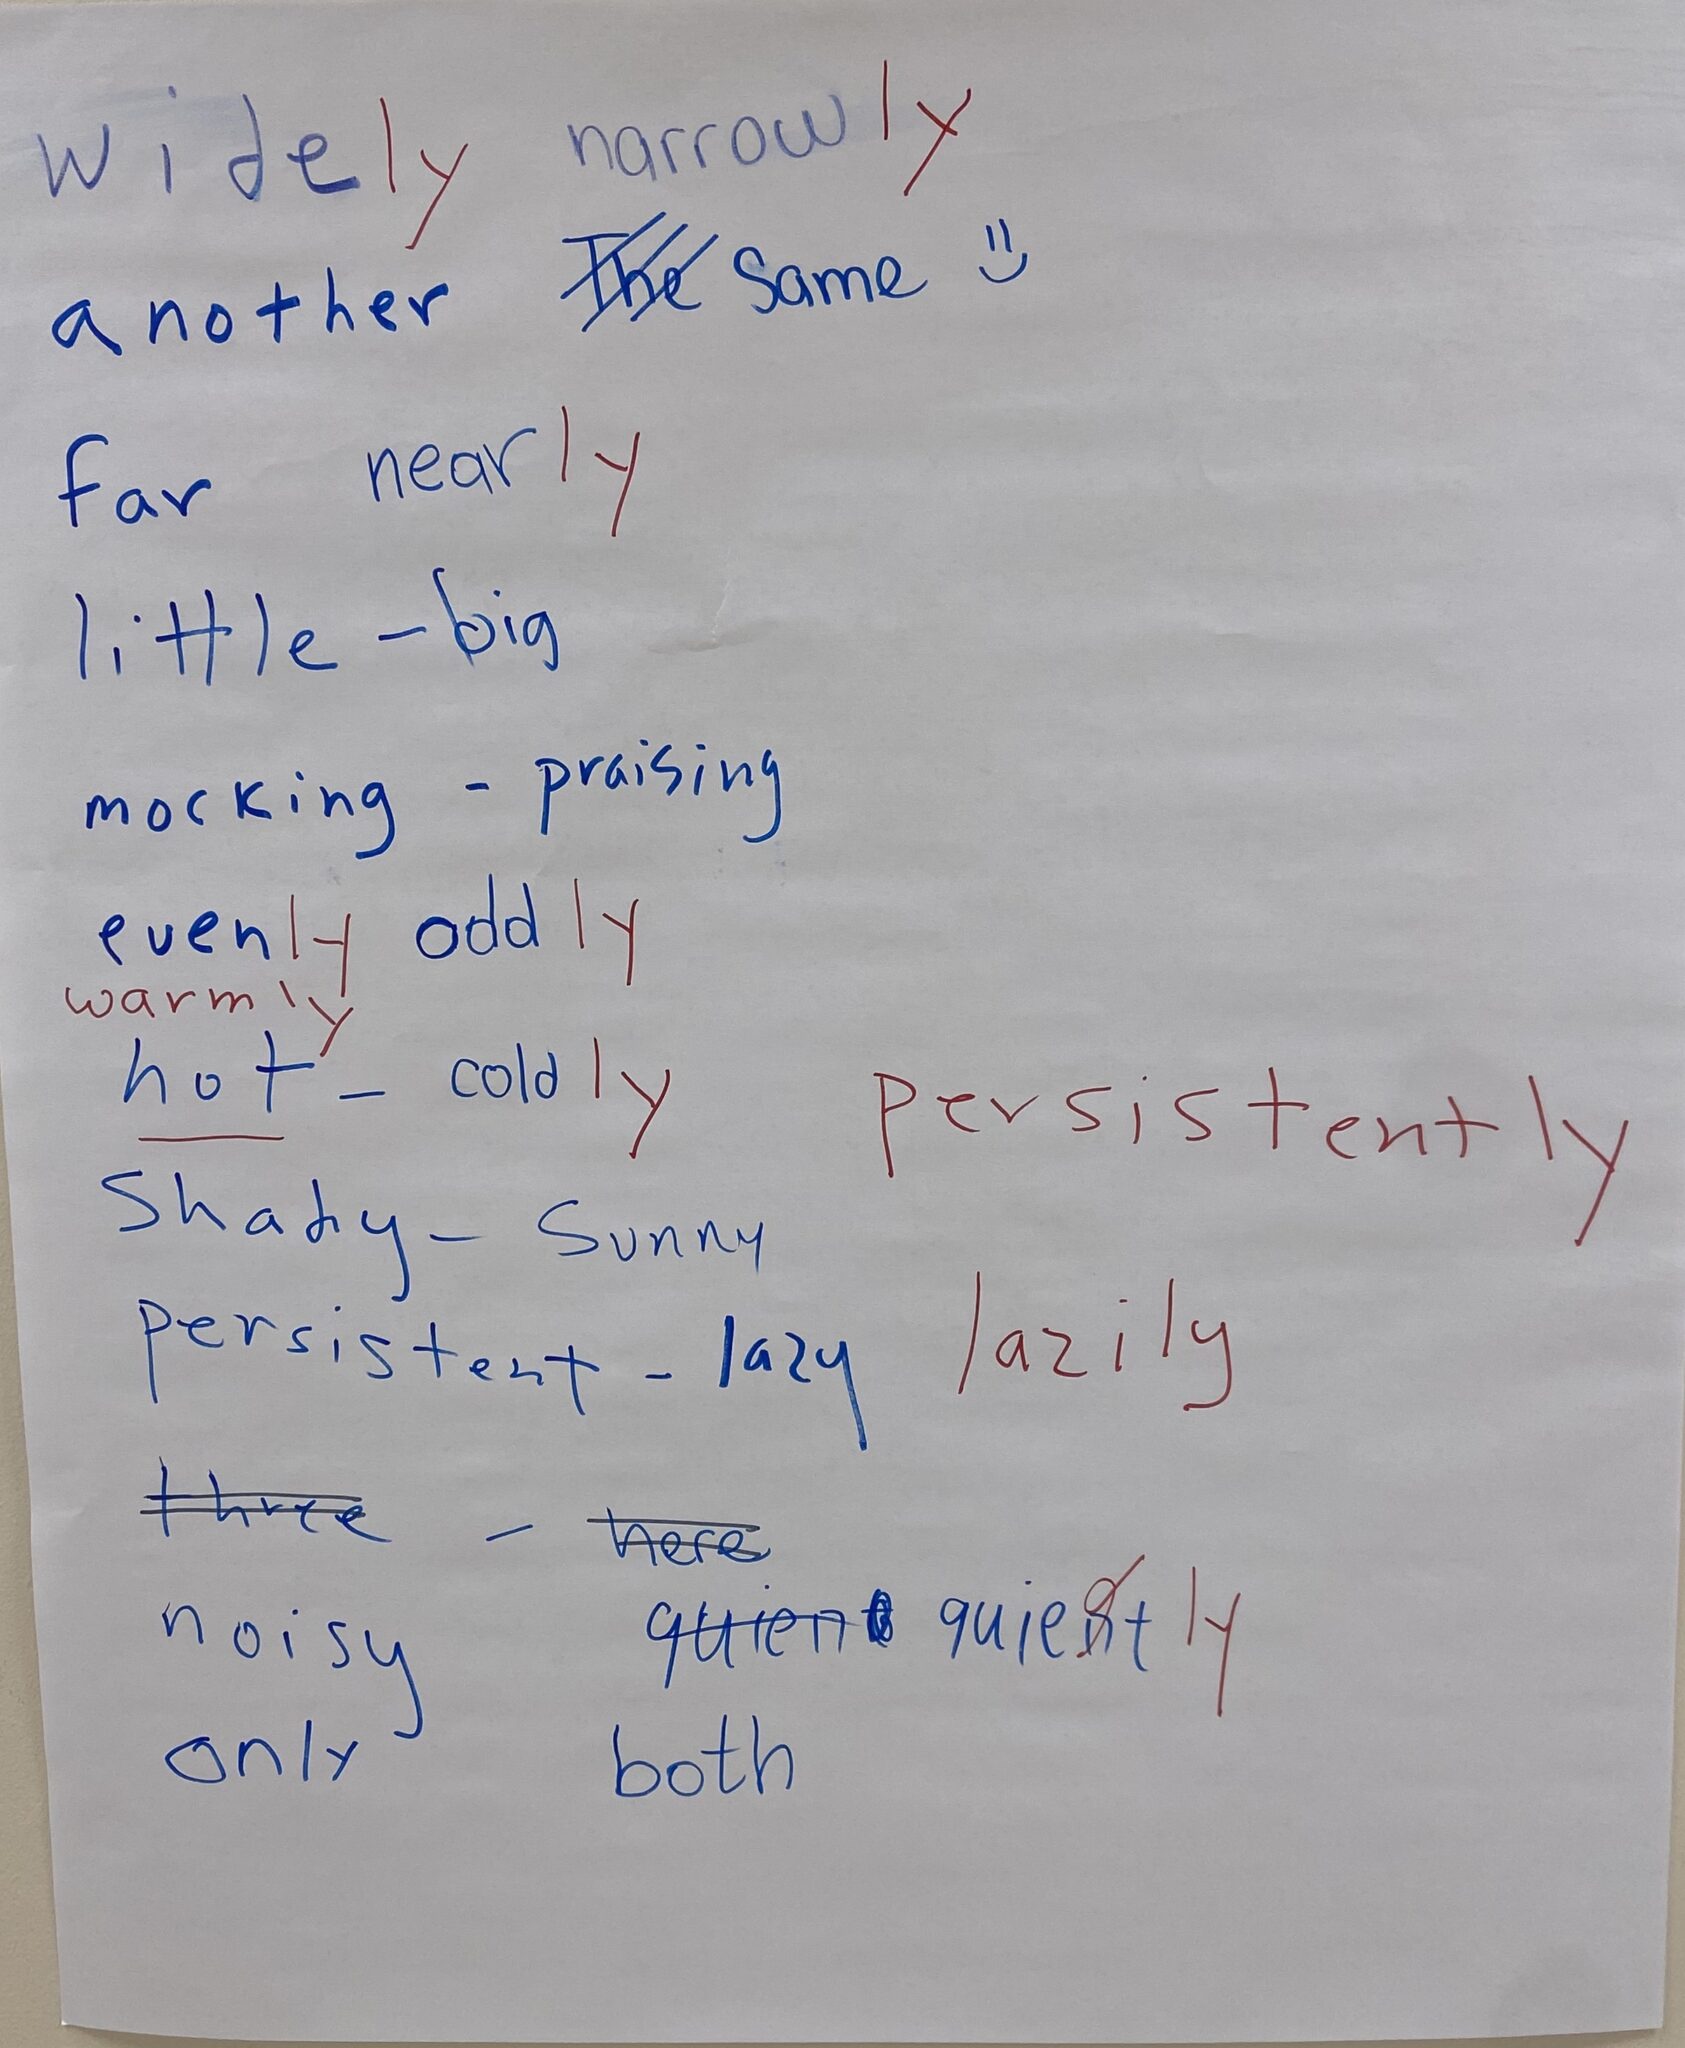 widely narrowly
another The same
far nearly
little - big
mocking - praising
evenly oddly
warmly
hot - coldly
persistently
Shady - Sunny
persistent - lazy lazily
three - here
noisy quient quiently
only both